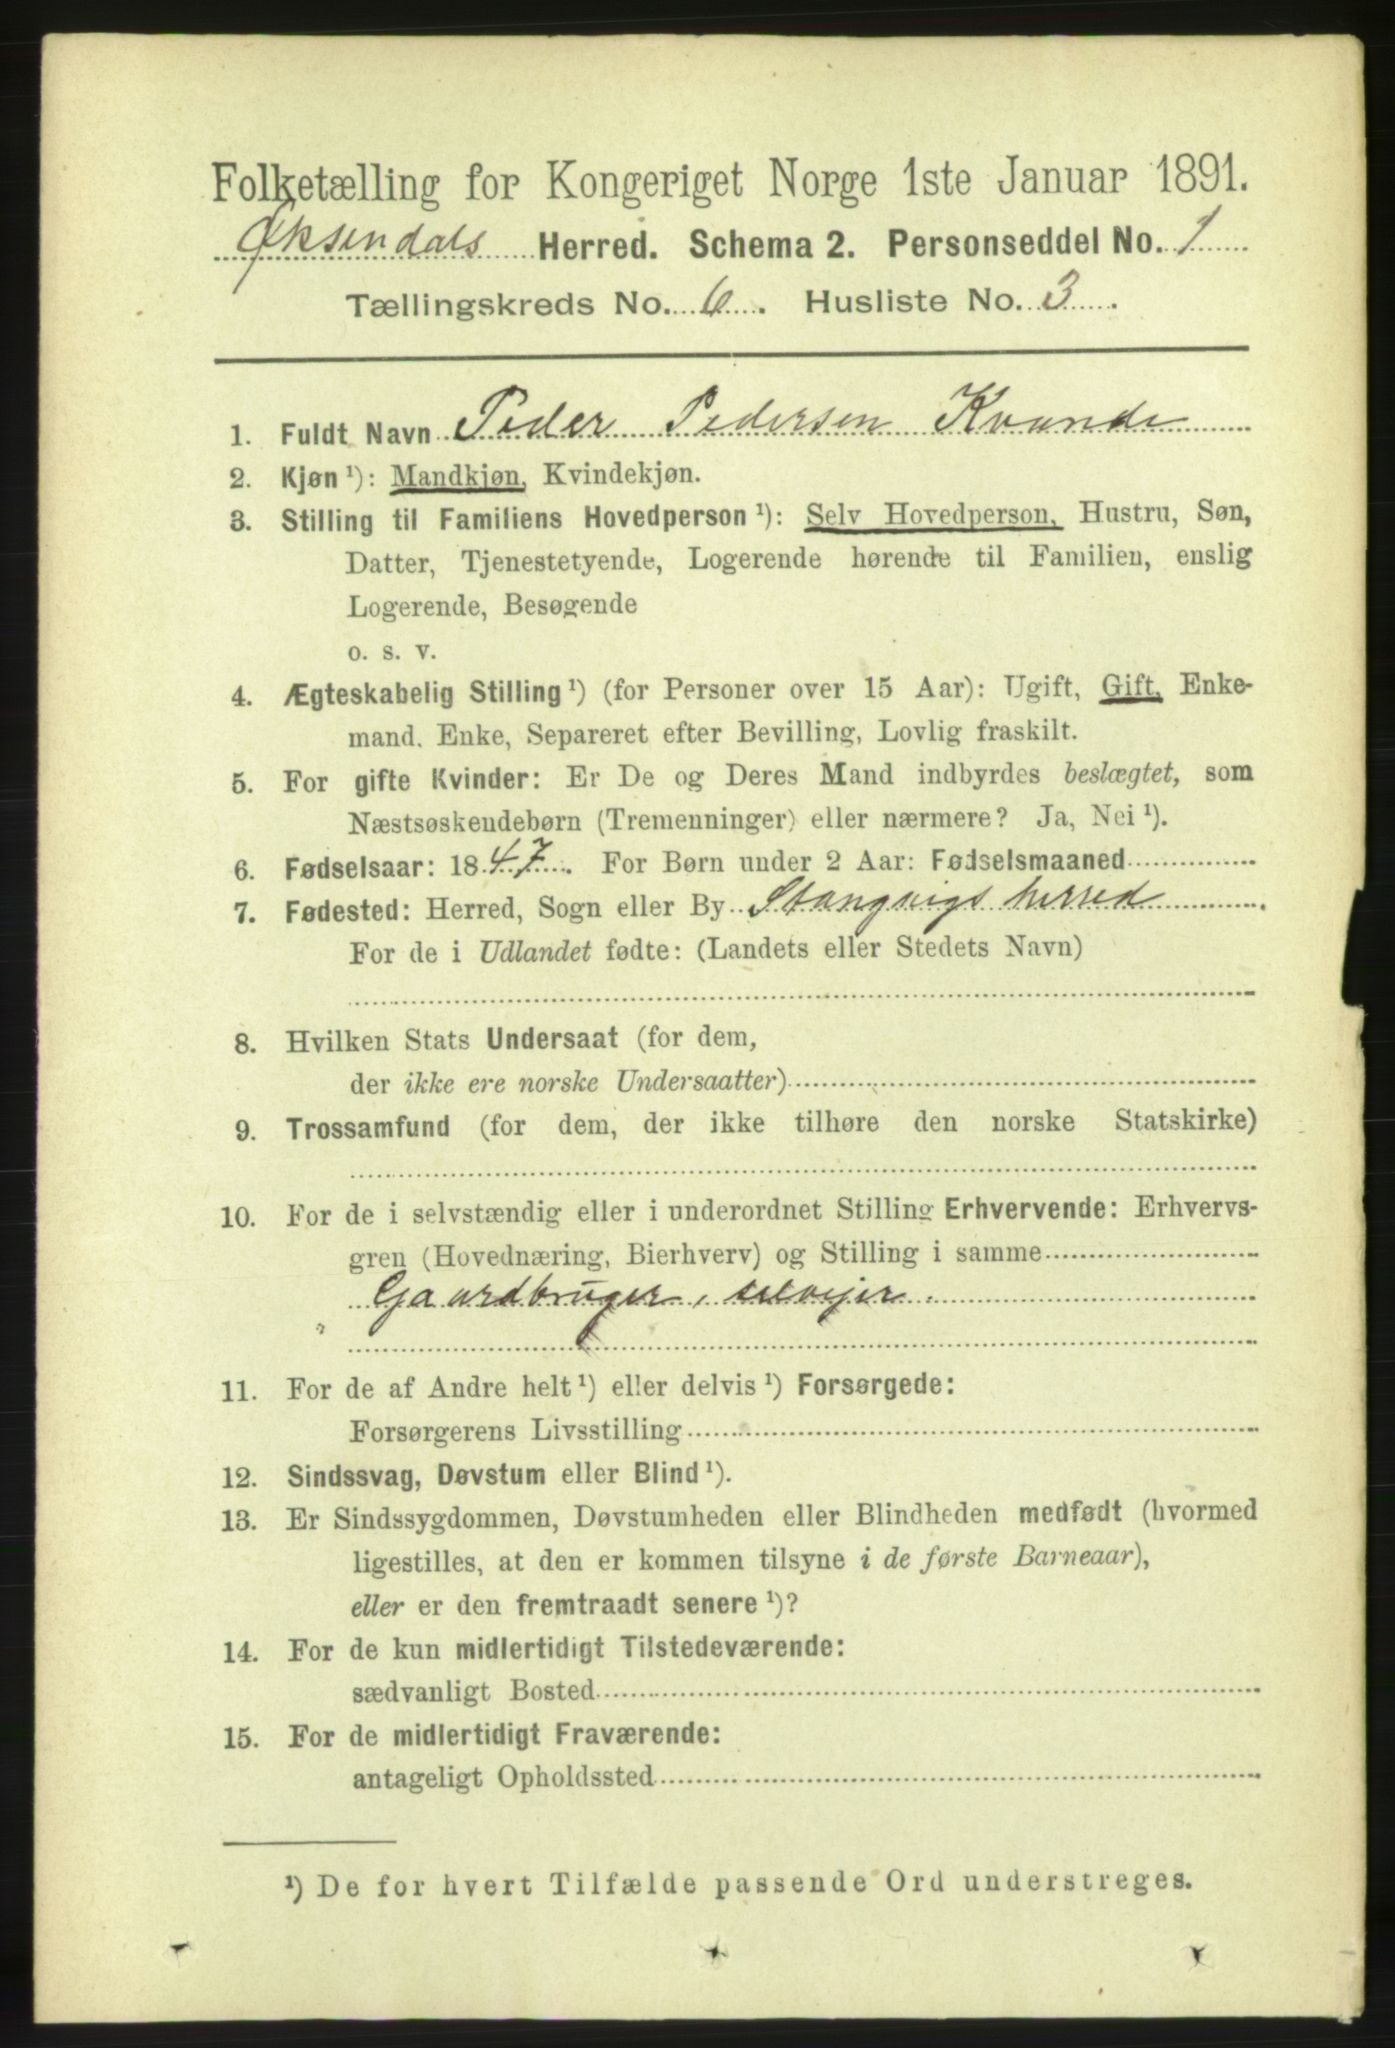 Folketælling for Kongeriget Norge 1ste Januar 1891.
Øksendals Herred. Schema 2. Personseddel No. 1
Tællingskreds No. 6. Husliste No. 3.
1. Fuldt Navn Peder Pedersen Kvande
2. Kjøn ¹): Mandkjøn, Kvindekjøn.
3. Stilling til Familiens Hovedperson ¹): Selv Hovedperson, Hustru, Søn,
Datter, Tjenestetyende, Logerende hørende til Familien, enslig
Logerende, Besøgende
o. s. v.
4. Ægteskabelig Stilling ¹) (for Personer over 15 Aar): Ugift, Gift, Enke-
mand, Enke, Separeret efter Bevilling, Lovlig fraskilt.
5. For gifte Kvinder: Er De og Deres Mand indbyrdes beslægtet, som
Næstsøskendebørn (Tremenninger) eller nærmere? Ja, Nei ¹).
6. Fødselsaar: 1847. For Børn under 2 Aar: Fødselsmaaned
7. Fødested: Herred, Sogn eller By Stangvigs herred
For de i Udlandet fødte: (Landets eller Stedets Navn)
8. Hvilken Stats Undersaat (for dem,
der ikke ere norske Undersaatter)
9. Trossamfund (for dem, der ikke tilhøre den norske Statskirke)
10. For de i selvstændig eller i underordnet Stilling Erhvervende: Erhvervs-
gren (Hovednæring, Bierhverv) og Stilling i samme
Gaardbruger, selvejer.
11. For de af Andre helt ¹) eller delvis ¹) Forsørgede:
Forsørgerens Livsstilling
12. Sindssvag, Døvstum eller Blind ¹).
13. Er Sindssygdommen, Døvstumheden eller Blindheden medfødt (hvormed
ligestilles, at den er kommen tilsyne i de første Barneaar),
eller er den fremtraadt senere ¹)?
14. For de kun midlertidigt Tilstedeværende:
sædvanligt Bosted
15. For de midlertidigt Fraværende:
antageligt Opholdssted
¹) De for hvert Tilfælde passende Ord understreges.